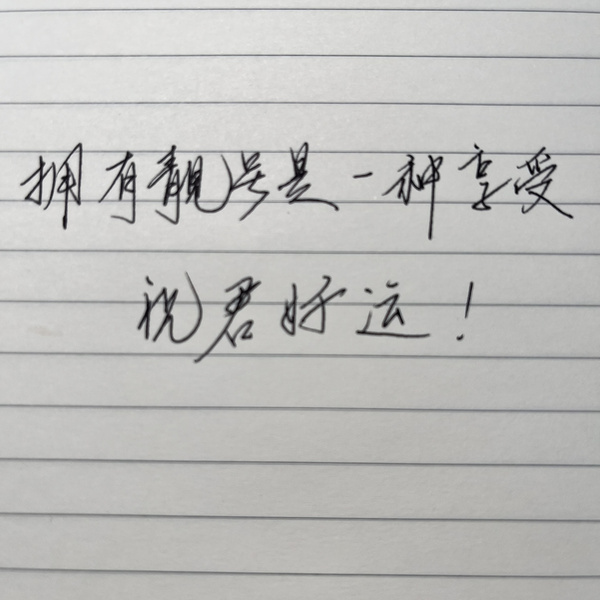 拥有靓号是一种享受
祝君好运！